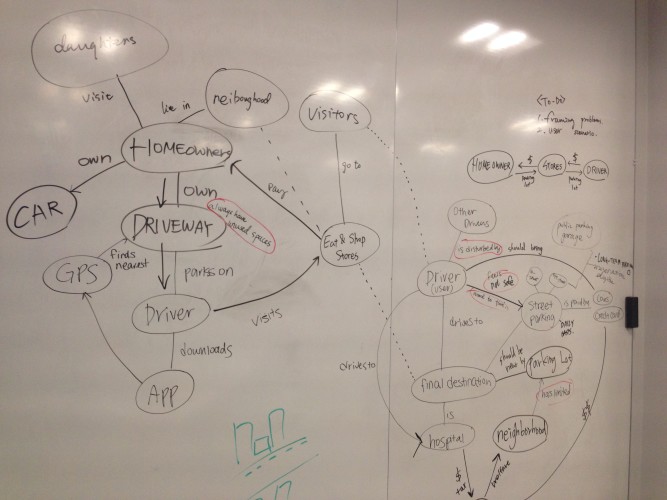 daughters
visit
live in
neibourghood
HOMEOWNERS
own
CAR
own
DRIVEWAY
always have
unused spaces
finds
nearest
GPS
parks on
Driver
downloads
APP
visits
pays
Visitors
go to
Eat & Shop
Stores
<TO-DO>
1. framing problem.
2. user scenario.
HOMEOWNER
$
STORES
$
DRIVER
parking
lot
parking
lot
Other
Drivers
is disturbed by
should bring
public parking
garage
Driver
(USER)
not safe
Street
parking
is pouring
drives to
drives to
final destination
should be
Parking Lot
has limited
is
hospital
neighborhood
$
tax
$$